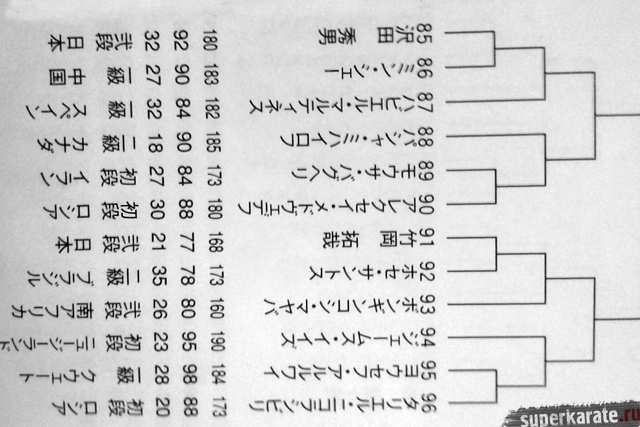 85 沢田 秀男 180 92 32 弐段 日本
86 ミン・ジェー 183 90 27 一級 中国
87 ハビエル・マルティネス 182 84 32 一級 スペイン
88 パシャ・ミハイロフ 185 90 18 級 カナダ
89 モウサ・バグヘリ 173 84 27 初段 イラン
90 アレクセイ・メドヴェデフ 180 88 30 初段 ロシア
91 竹岡 拓哉 168 77 21 弐段 日本
92 ホセ・サントス 173 78 35 一級 ブラジル
93 ボンギンコシ・マヤバ 160 80 26 弐段 南アフリカ
94 ジェームス・イイズ 190 95 23 初段 ニュージーランド
95 ヨウセフ・アルルワイ 184 98 28 一級 クウェート
96 タリエル・ニコラシビリ 173 88 20 初段 ロシア
superkarate.ru